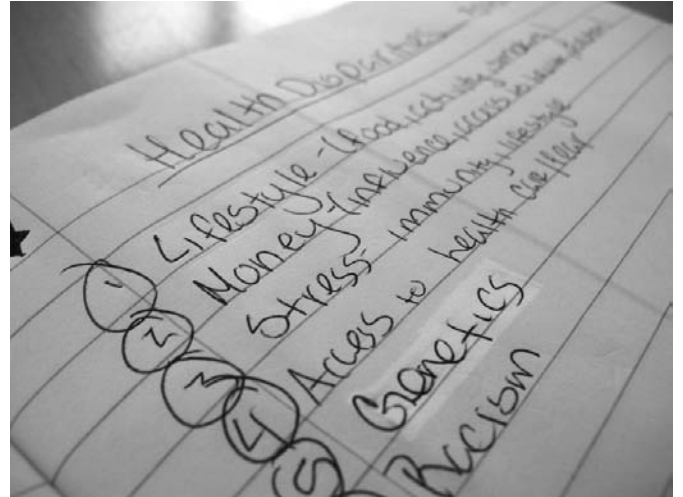 Health Disparities
1 Lifestyle - (food, activity,
2 Money - (influence, access to
3 Stress - immunity, lifestyle
4 Access to health care/
5 Genetics
Racism